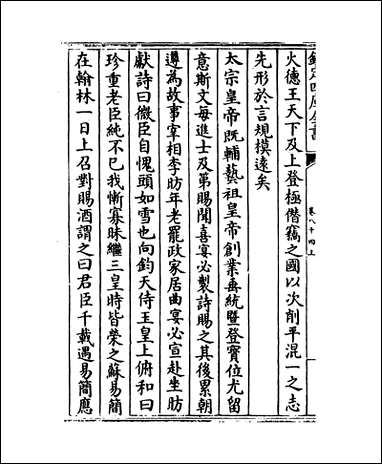 欽定四庫全書
卷八十四上
火德王天下及上登極僭竊之國以次削平混一之志
先形於言規模遠矣
太宗皇帝既輔藝祖皇帝創業垂統暨登寶位尤留
意斯文每進士及第賜聞喜宴必製詩賜之其後累朝
遵為故事宰相李昉年老罷政家居曲宴必宣赴坐昉
獻詩曰微臣自愧頭如雪也向鈞天侍玉皇上俯和曰
珍重老臣純不已我慚寡昧繼三皇時皆榮之蘇易簡
在翰林一日上召對賜酒謂之曰君臣千載遇易簡應